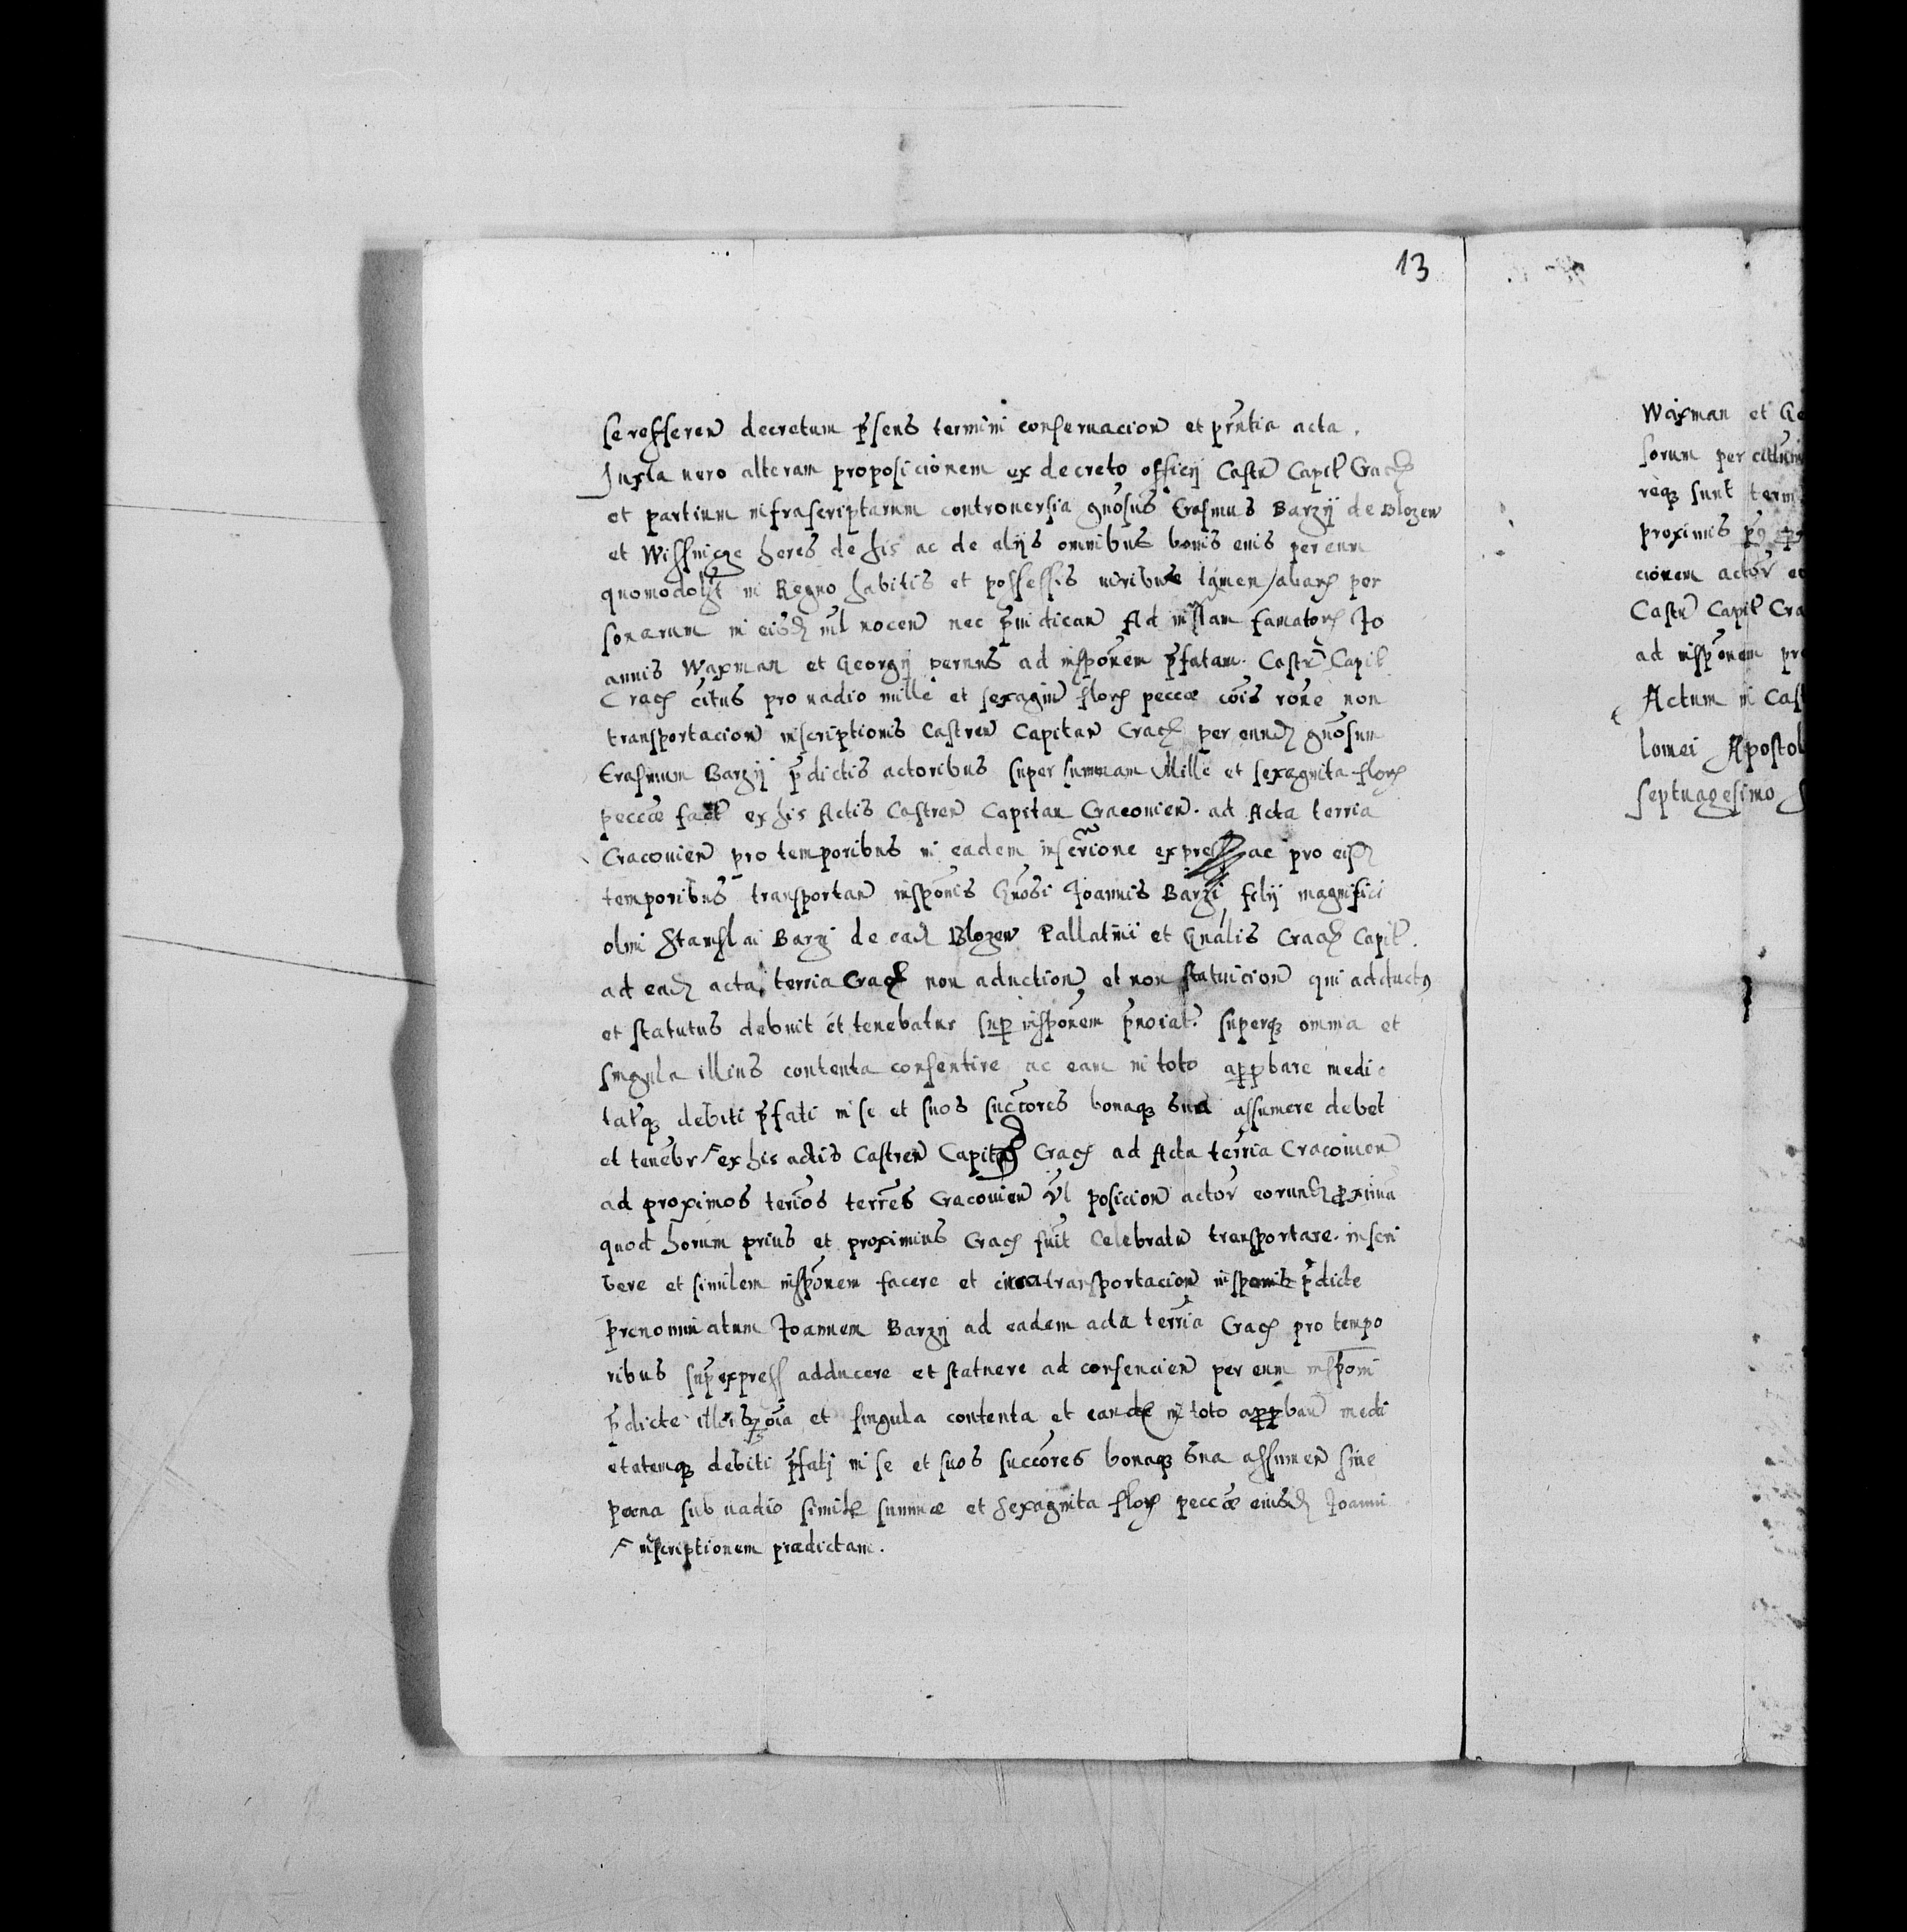 13
se refferen decretum p̃sens termini conseruacion et pñtia acta.
Juxta uero alteram proposicionem ex decreto officij Castr Capit Crac
et partium infrascriptarum controuersia gnõsus Erasmus Barzij de Blozew
et Wissnicze heres de his ac de alijs omnibus bonis eius per eum
quomodolzt in Regno habitis et possessis iuribus tamen aliarum per
sonarum in eisd nil nocen nec p̃iudican Ad instam famatorum Jo
annis Waxman et Georgij pernus ad inspõnem p̃fatam Castr Capit
Crac citus pro uadio mille et sexagin florum peccæ cõis rõne non
transportacion inscriptionis Castren Capitan Crac per eund gnõsum
Erasmum Barzij p̃dictis actoribus super summam Mille et sexaginta florum
peccæ fact ex his Actis Castren Capitan Cracouien. ad Acta terria
Cracouien pro temporibus in eadem inscrĩone express ac pro eisd
temporibus transportan inspõnis Gnõsi Joannis Barzi filij magnifici
olim Stanislai Barzi de ead Blozew Pallatini et Gnãlis Crac Capit.
ad ead acta terria Crac non aduction et non statuicion qui adductus
et statutus debuit et tenebatur sup inspõnem p̃noiat superq omnia et
singula illius contenta consentire ac eam in toto appbare medie
tatq debiti p̃fati in se et suos succõres bonaq sua assumere debet
et tenebr ⌜ ex his actis Castren Capitan Crac ad Acta terria Cracouien
ad proximos terios terres Cracouien vl posicion actor eorund proxima
quod horum prius et proximius Crac fuit Celebratu transportare inscri
bere et similem inspõnem facere et circa transportacion inspõnis p̃dicte
prenominatum Joannem Barzij ad eadem acta terria Crac pro tempo
ribus supexpress adducere et statuere ad consencien per eum inspõni
p̃dicte illiusq oia et singula contenta et eand in toto appban medi
etatemq debiti p̃fatj in se et suos succõres bonaq sua assumen sine
poena sub uadio simili summæ et sexaginta florum peccæ eiusd Joanni
⌜ inscriptionem prædictam.
Waxman et Ge
sorum per citum
req sunt term
proximis
cionem actor eo
Castr Capit Cra
ad inspõnem pre
Actum in Cas
lomei Apostol
septuagesimo S